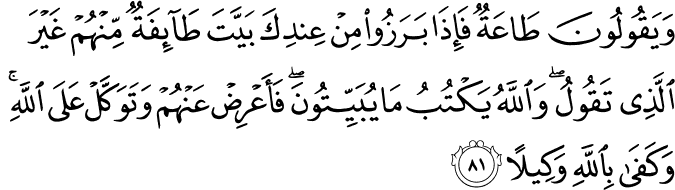 وَيَقُولُونَ طَاعَةٌ فَإِذَا بَرَزُوا۟ مِنْ عِندِكَ بَيَّتَ طَآئِفَةٌ مِّنْهُمْ غَيْرَ
ٱلَّذِى تَقُولُ ۖ وَٱللَّهُ يَكْتُبُ مَا يُبَيِّتُونَ ۖ فَأَعْرِضْ عَنْهُمْ وَتَوَكَّلْ عَلَى ٱللَّهِ ۚ
وَكَفَىٰ بِٱللَّهِ وَكِيلًا ٨١